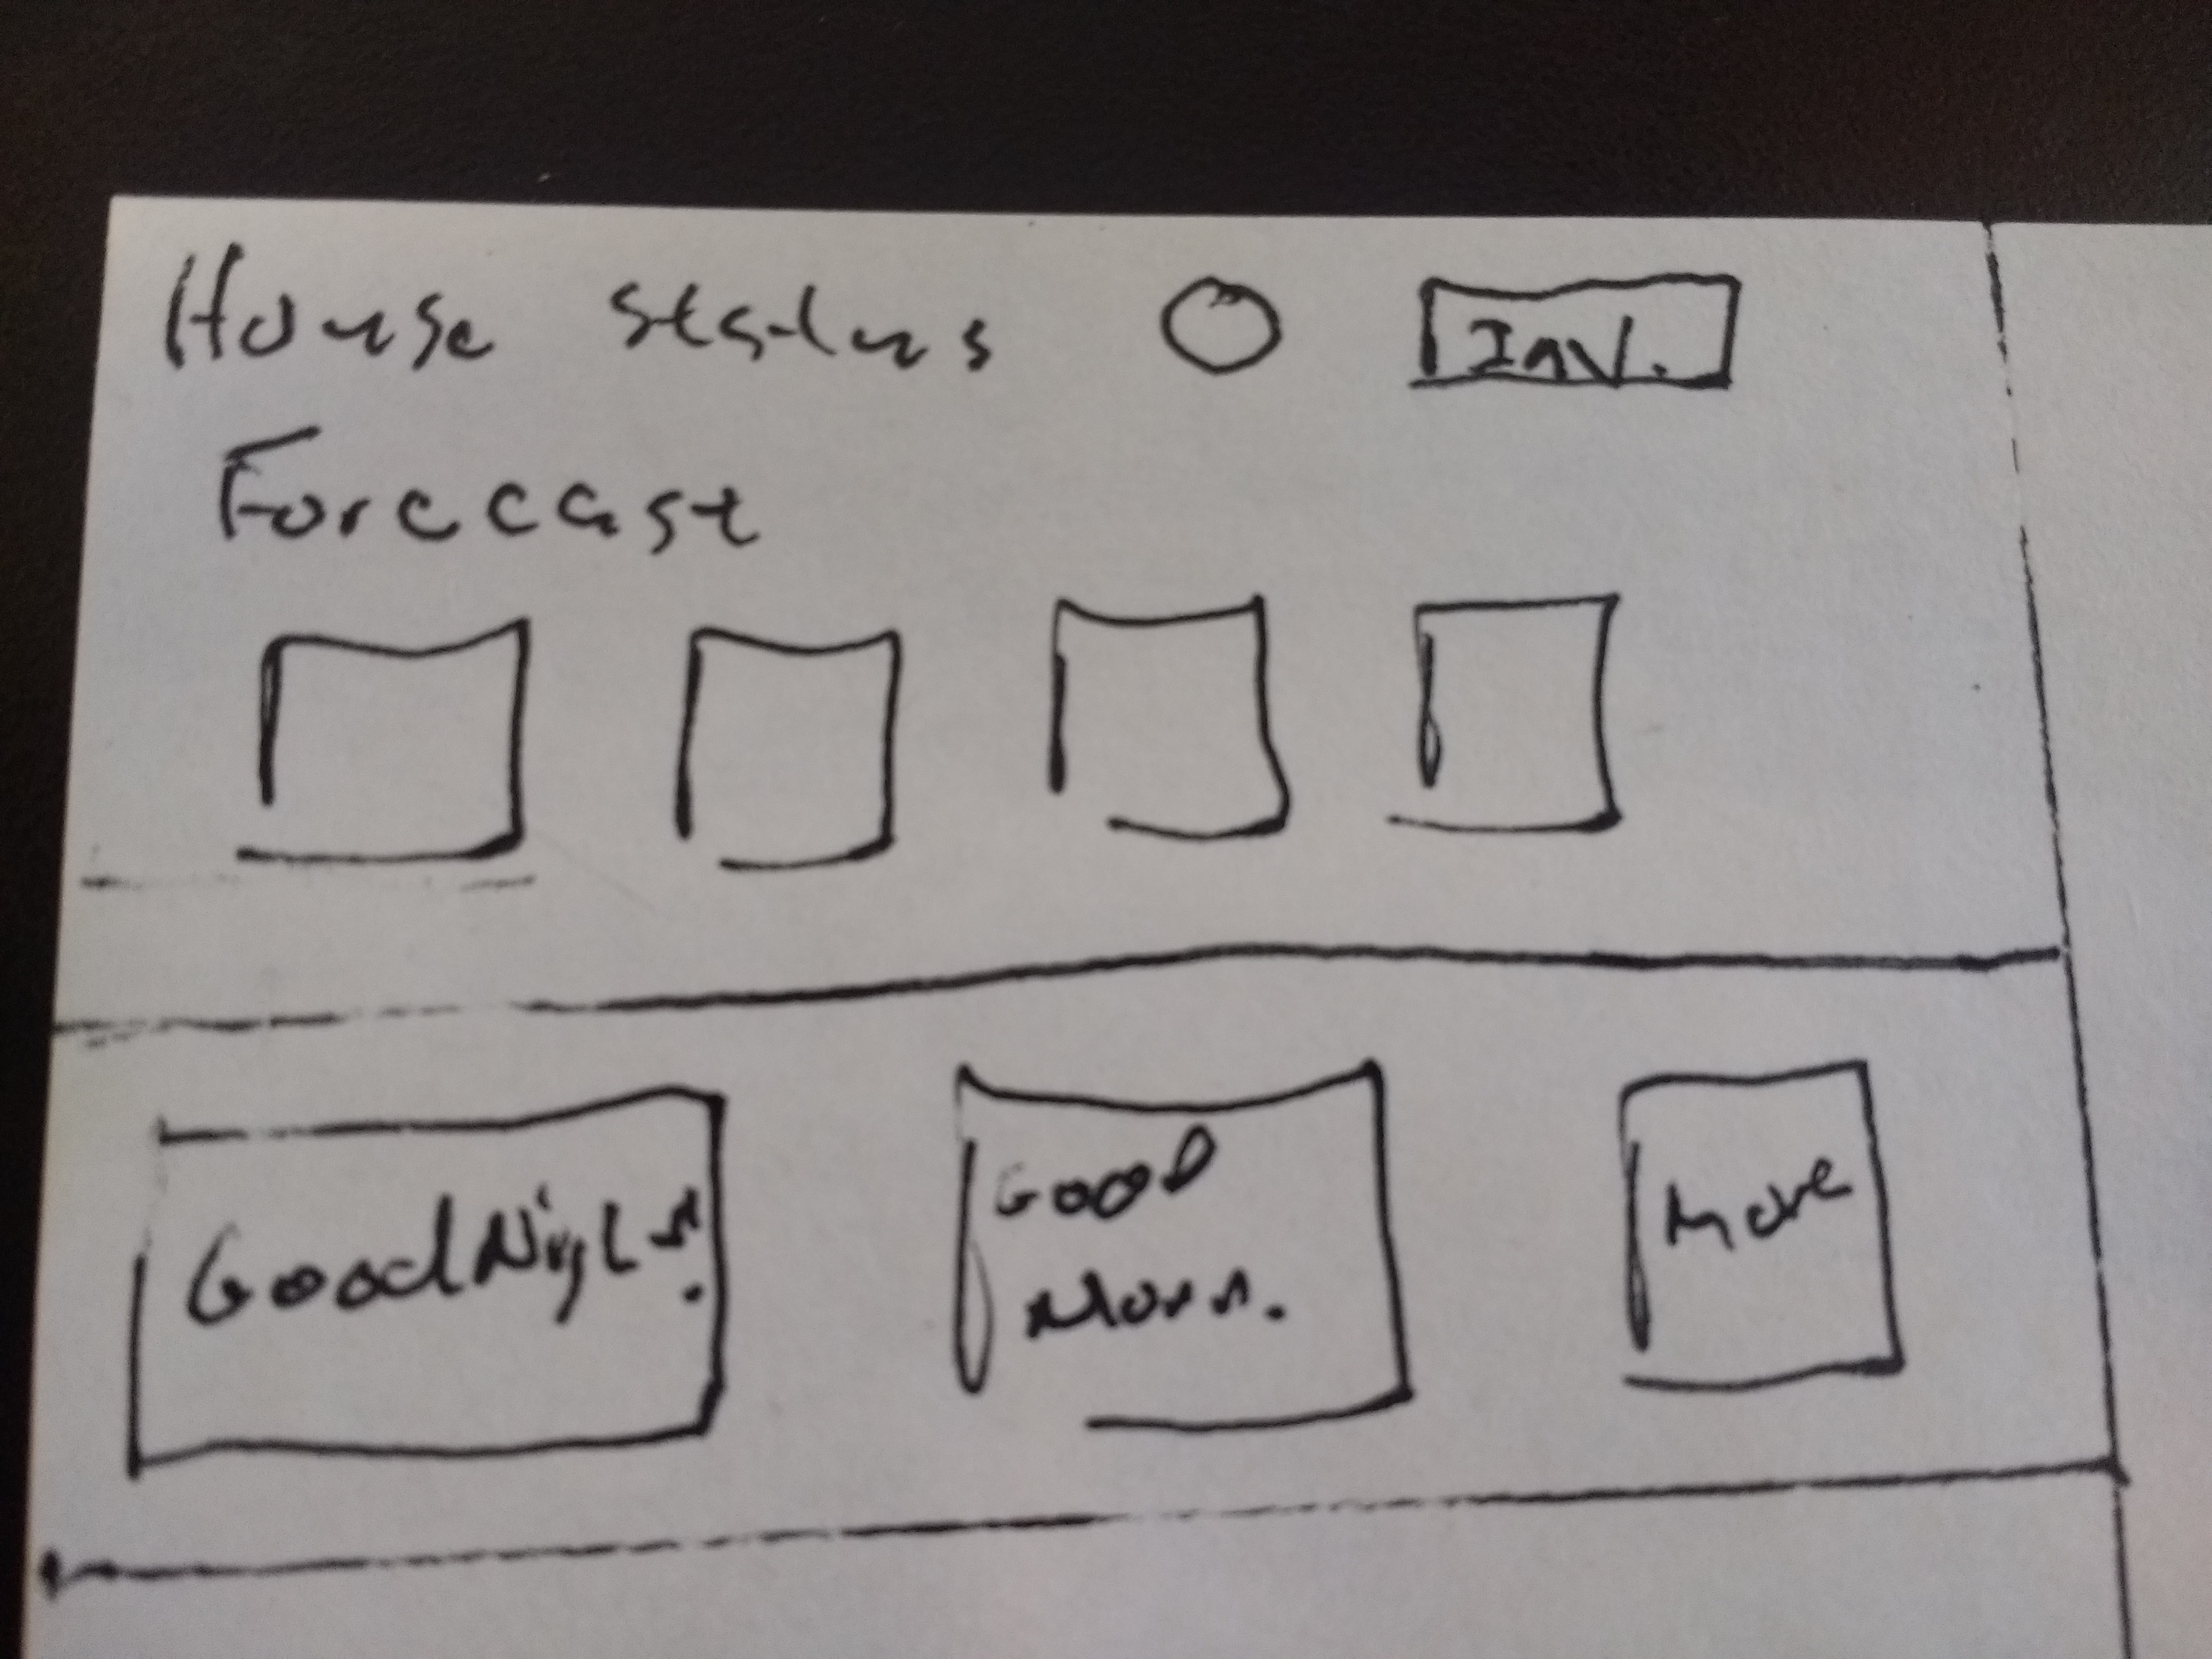 House status Inv.
Forecast
GoodNight
Good
Morn.
More